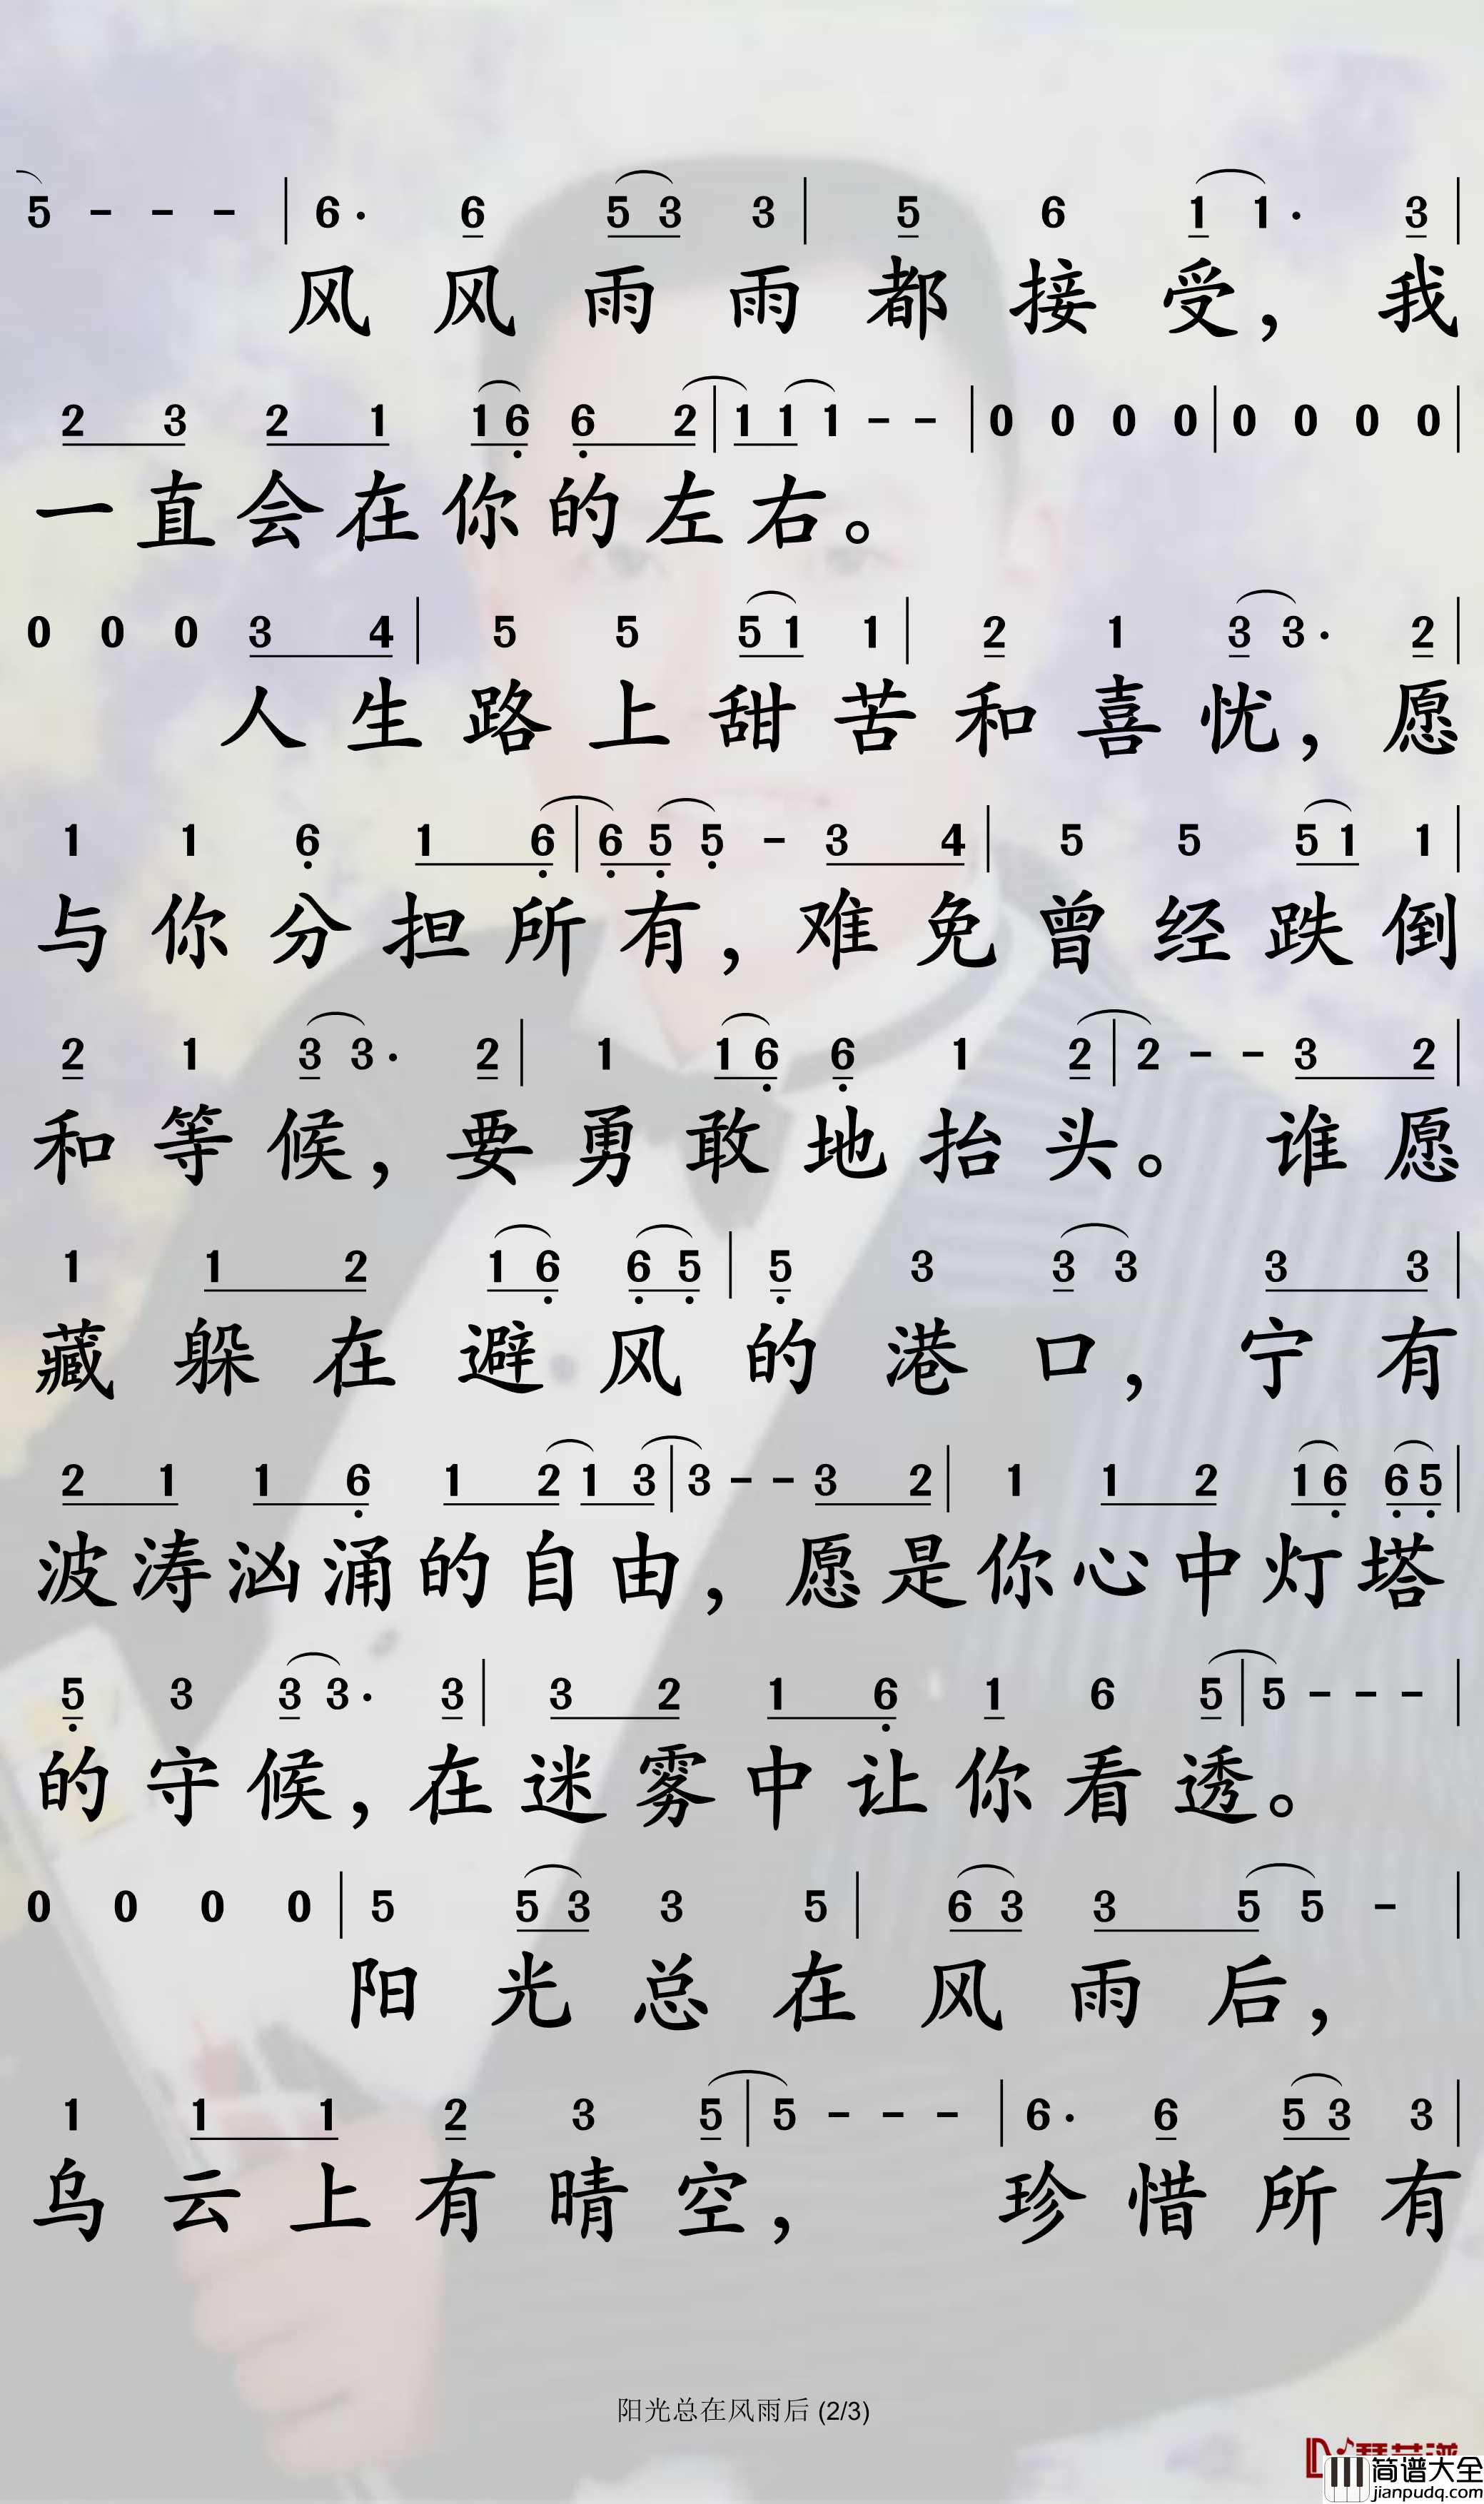 5 - - - | 6· 6 5 3 3 | 5 6 1 1· 3 |
风风雨雨都接受，我
2 3 2 1 1 6 6 2 | 1 1 1 - - | 0 0 0 0 | 0 0 0 0 |
一直会在你的左右。
0 0 0 3 4 | 5 5 5 1 1 | 2 1 3 3· 2 |
人生路上甜苦和喜忧，愿
1 1 6 1 6 | 6 5 5 - 3 4 | 5 5 5 1 1 |
与你分担所有，难免曾经跌倒
2 1 3 3· 2 | 1 1 6 6 1 2 | 2 - - 3 2 |
和等候，要勇敢地抬头。谁愿
1 1 2 1 6 6 5 | 5 3 3 3 3 3 |
藏躲在避风的港口，宁有
2 1 1 6 1 2 1 3 | 3 - - 3 2 | 1 1 2 1 6 6 5 |
波涛汹涌的自由，愿是你心中灯塔
5 3 3 3· 3 | 3 2 1 6 1 6 5 | 5 - - - |
的守候，在迷雾中让你看透。
0 0 0 0 | 5 5 3 3 5 | 6 3 3 5 5 - |
阳光总在风雨后，
1 1 1 2 3 5 | 5 - - - | 6· 6 5 3 3 |
乌云上有晴空，珍惜所有
阳光总在风雨后 (2/3)
简谱大全
jianpudq.com